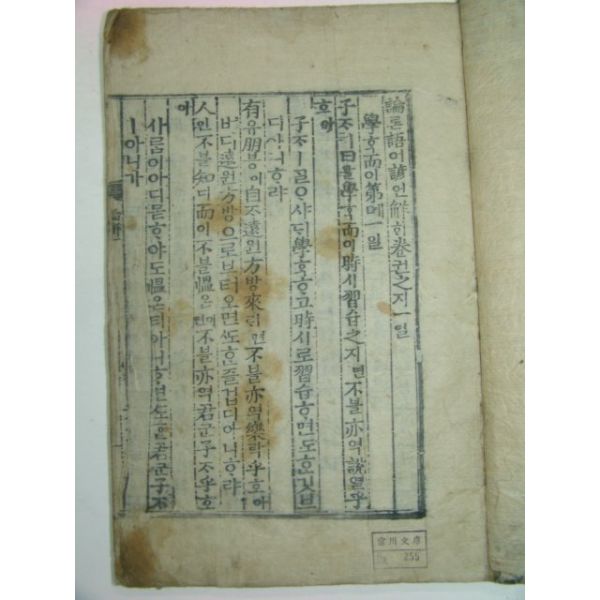 論론語어諺언解ᄒᆡ卷권之지一일
學ᄒᆞᆨ而이第뎨一일
子ᄌᆞㅣ曰왈學ᄒᆞᆨ而이時시習습之지면不블亦역說열乎
호아
子ᄌᆞㅣᄀᆞᆯᄋᆞ샤ᄃᆡ學ᄒᆞᆨᄒᆞ고時시로習습ᄒᆞ면ᄯᅩᄒᆞᆫ깃브
디아니ᄒᆞ랴
有유朋붕이自ᄌᆞ遠원方방來ᄅᆡ면不블亦역樂락乎호아
버디遠원方방으로브터오면ᄯᅩᄒᆞᆫ즐겁디아니ᄒᆞ랴
人인不블知디而이不블慍온이면不블亦역君군子ᄌᆞ乎호
아
사ᄅᆞᆷ이아디몯ᄒᆞ야도慍온티아니ᄒᆞ면ᄯᅩᄒᆞᆫ君군子ᄌᆞ
ㅣ아니가
文庫
255